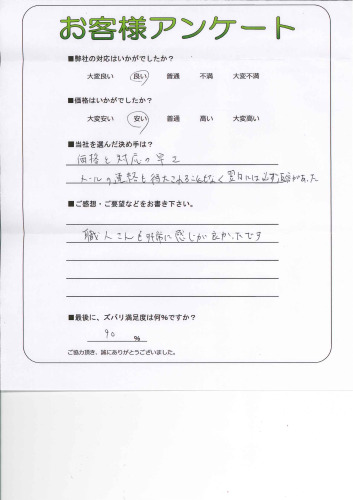 お客様アンケート
■弊社の対応はいかがでしたか？
大変良い 良い 普通 不満 大変不満
■価格はいかがでしたか？
大変安い 安い 普通 高い 大変高い
■当社を選んだ決め手は？
価格と対応の早さ
メールの連絡も待たされることなく翌日には必ず返答があった
■ご感想・ご要望などをお書き下さい。
職人さんも非常に感じが良かったです
■最後に、ズバリ満足度は何%ですか？
90 %
ご協力頂き、誠にありがとうございました。